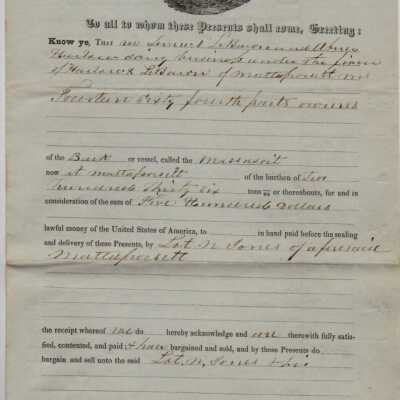 To all to whom these Presents shall come, Greeting:
Know ye, THAT we Lemuel LeBaron and
Harlow doing business under the firm
of Harlow & LeBaron of Mattapoisett
Fourteen sixty fourth parts owners
of the Bark or vessel, called the Massasoit
now at Mattapoisett of the burthen of Two
hundred thirty six tons or thereabouts, for and in
consideration of the sum of Five Hundred Dollars
lawful money of the United States of America, to in hand paid before the sealing
and delivery of these Presents, by Lot N Jones of aforesaid
Mattapoisett
the receipt whereof we do hereby acknowledge and are therewith fully satis-
fied, contented, and paid & have bargained and sold, and by these Presents do
bargain and sell unto the said Lot N, Jones & his